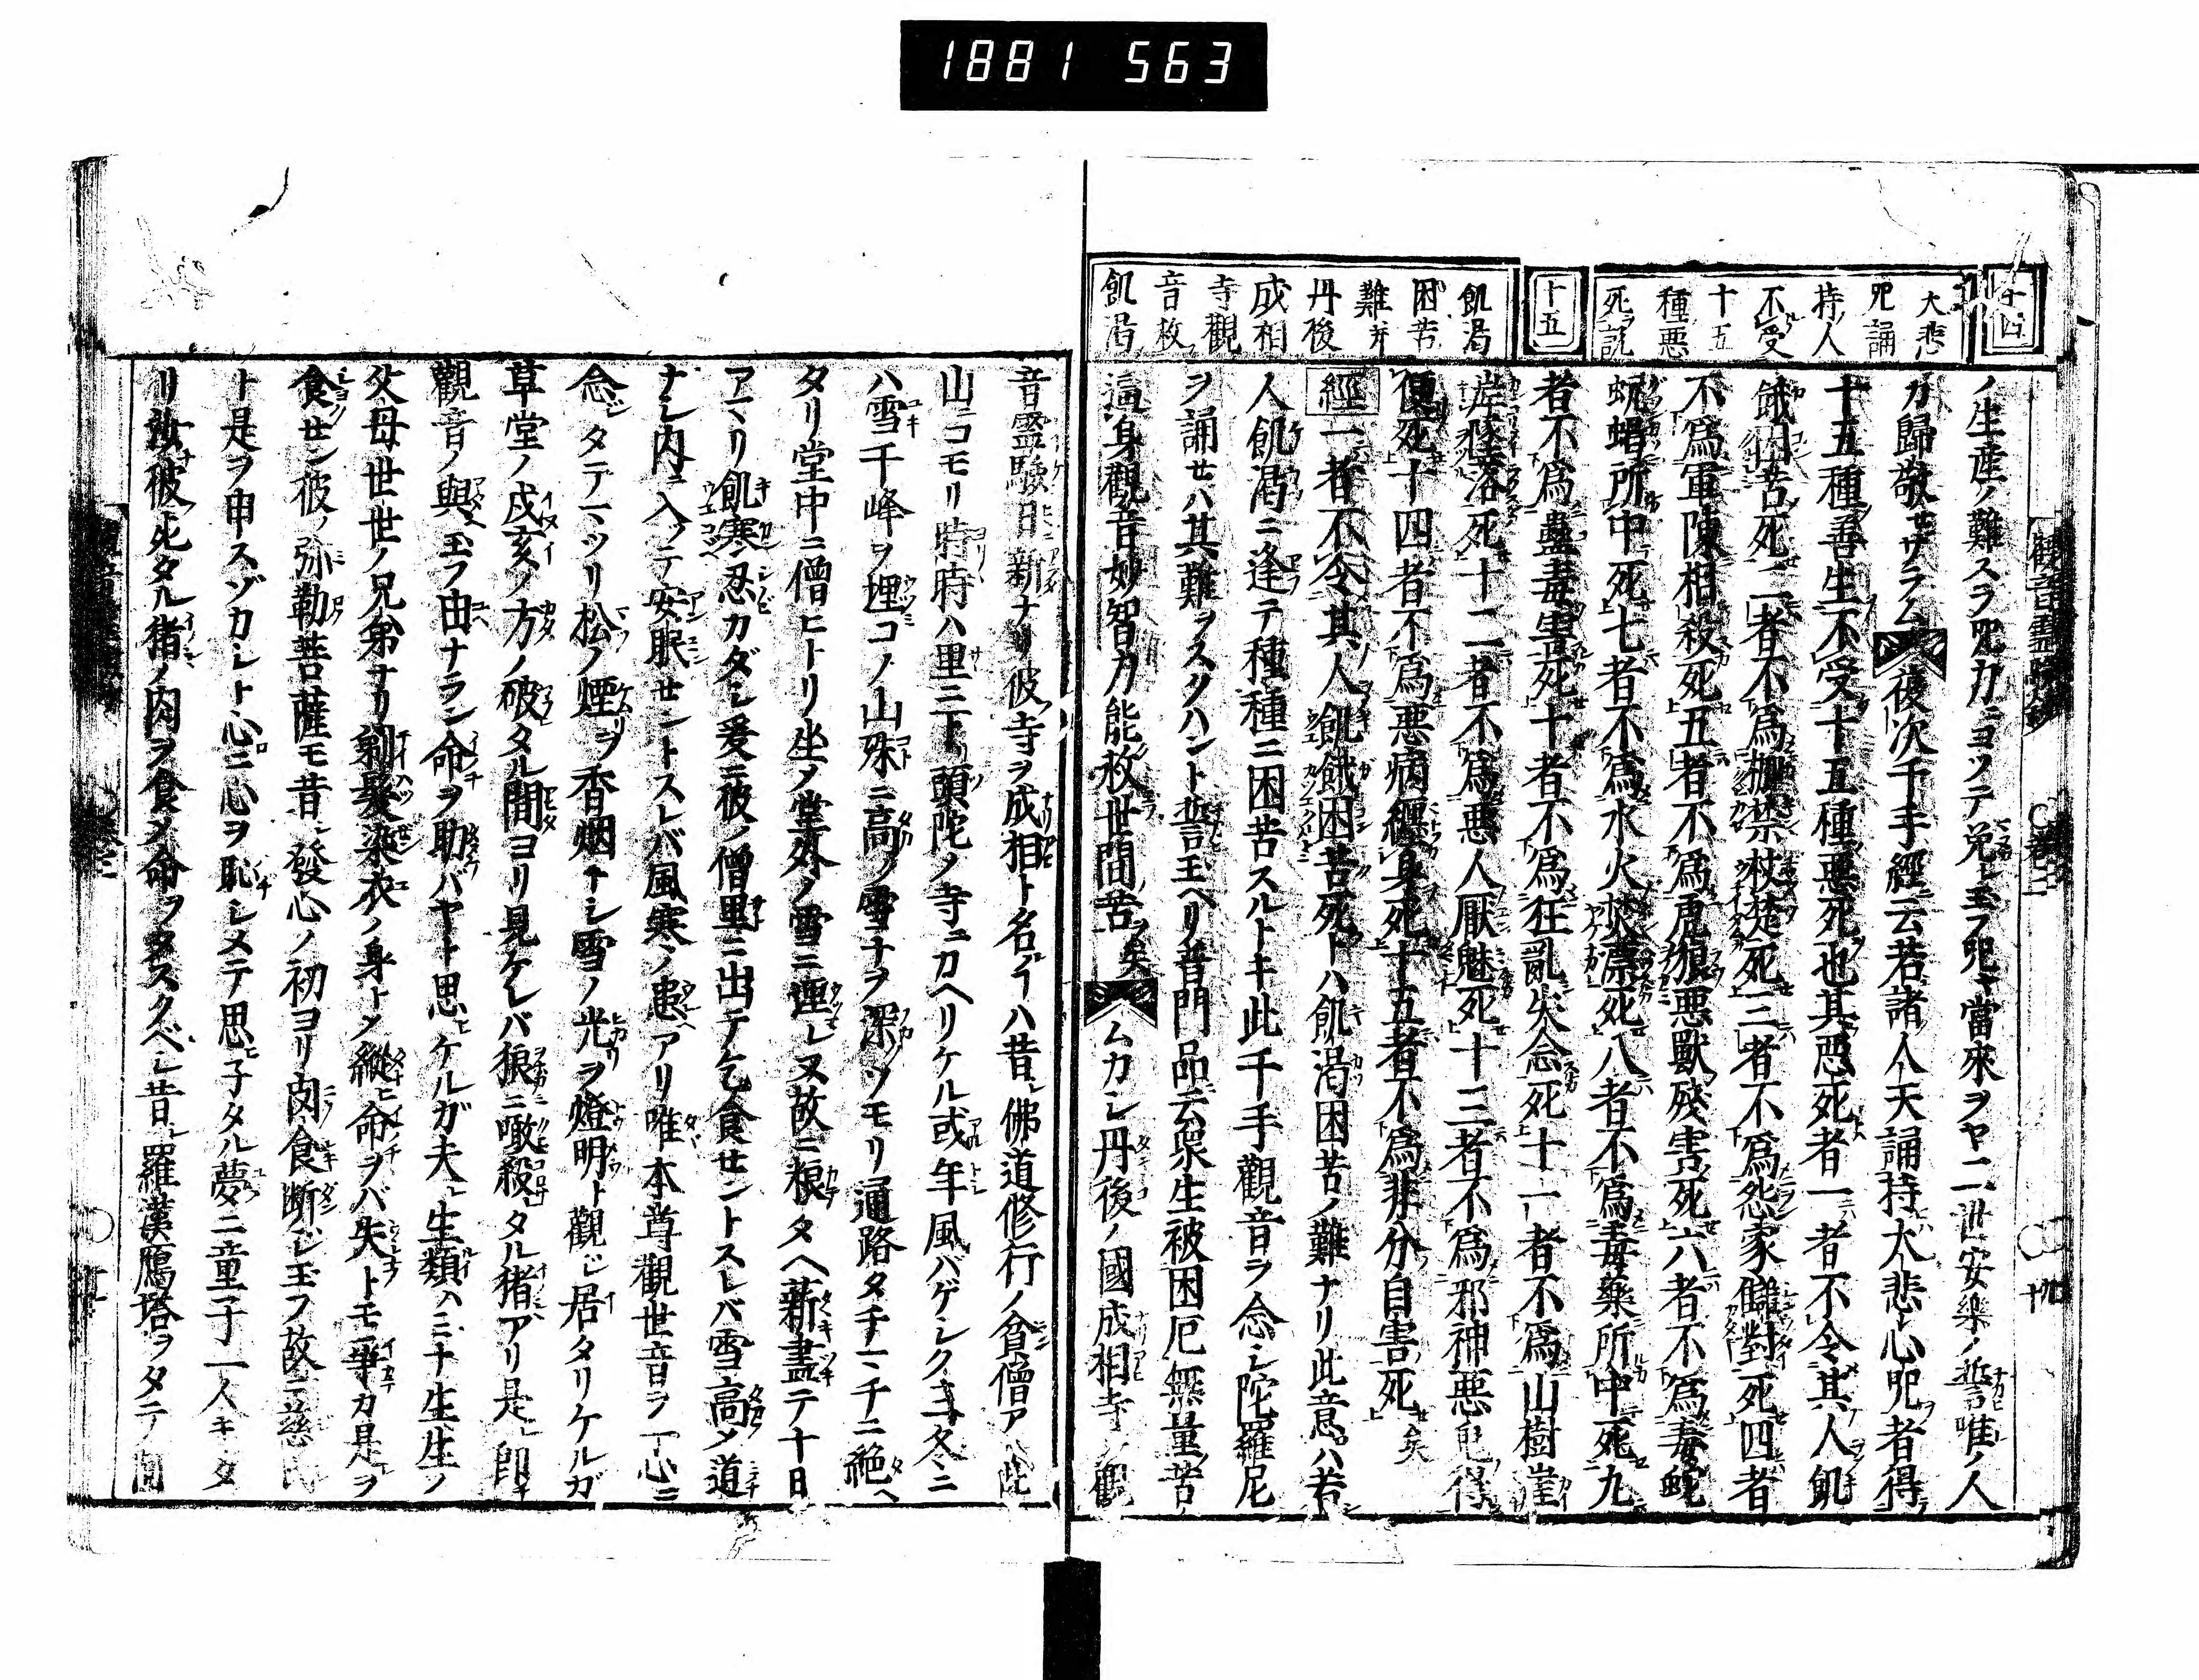 1881 563
十四
大悲
咒誦
持人
不受
十五
種悪
死ヲ説
十五
飢渇
困苦
難并
丹後
成相
寺觀
音救
飢渇
ノ生産ノ難スラ咒力ニヨツテ免レ玉フ咒當來ヲヤ二世安樂ノ誓唯ノ人
カ歸敬セザラム復次千手經云若諸人天誦持大悲心呪者得
十五種善生不受十五種悪死也其悪死者一者不令其人飢
餓困苦死二者不爲枷禁杖楚死三者不爲怨家讎對死四者
不爲軍陳相殺死五者不爲虎狼悪獸殘害死六者不爲毒蛇
蚖蝎所中死七者不爲水火焚漂死八者不爲毒藥所中死九
者不爲蠱毒害死十者不爲狂亂失念死十一者不爲山樹崖
岸墜落死十二者不爲悪人厭魅死十三者不爲邪神悪鬼得
便死十四者不爲悪病纒身死十五者不爲非分自害死矣
經一者不令其人飢餓困苦死トハ飢渇困苦ノ難ナリ此意ハ若
人飢渇ニ逢テ種種ニ困苦スルトキ此千手觀音ヲ念シ陀羅尼
ヲ誦セハ其難ヲスクハント誓玉ヘリ普門品云衆生被困厄無量苦
逼身觀音妙智力能救世間苦矣ムカシ丹後ノ國成相寺ノ觀
音靈驗日新ナリ彼寺ヲ成相ト名クイハ昔佛道修行ノ貧僧ア此
山ニコモリ時時ハ里ニ下リ頭陀ノ寺ニカヘリケル或年風バゲシク玄冬ニ
ハ雪千峰ヲ埋コノ山殊ニ高ク雪ナヲ深ツモリ通路タチマチニ絶ヘ
タリ堂中ニ僧ヒトリ坐メ堂外ノ雪ニ埋レヌ故ニ粮タヘ薪盡テ十日
アマリ飢寒忍カダシ爰ニ彼ノ僧里ニ出テ乞食セントスレバ雪高メ道
ナシ内ニ入ツテ安眠セントスレバ風寒ノ患アリ唯本尊觀世音ヲ一心ニ
念ジタテマツリ松ノ煙ヲ香烟トシ雪ノ光ヲ燈明ト觀ジ居タリケルガ
草堂ノ戌亥ノ方ノ破タル間ヨリ見ケレバ狼ニ噉殺タル猪アリ是即
觀音ノ與玉フ由ナラン命ヲ助バヤト思ケルガ夫生類ハミナ生生ノ
父母世世ノ兄弟ナリ剃髮染衣ノ身トメ縱命ヲバ失トモ爭カ是ヲ
食セン彼ノ弥勒菩薩モ昔發心ノ初ヨリ肉食断ジ玉フ故ニ慈氏
ト是ヲ申スゾカシト心ニ心ヲ恥シメテ思子タル夢ニ童子一人キタ
リ汝彼死タル猪ノ肉ヲ食メ命ヲタスクベシ昔羅漢鴈塔ヲタテ